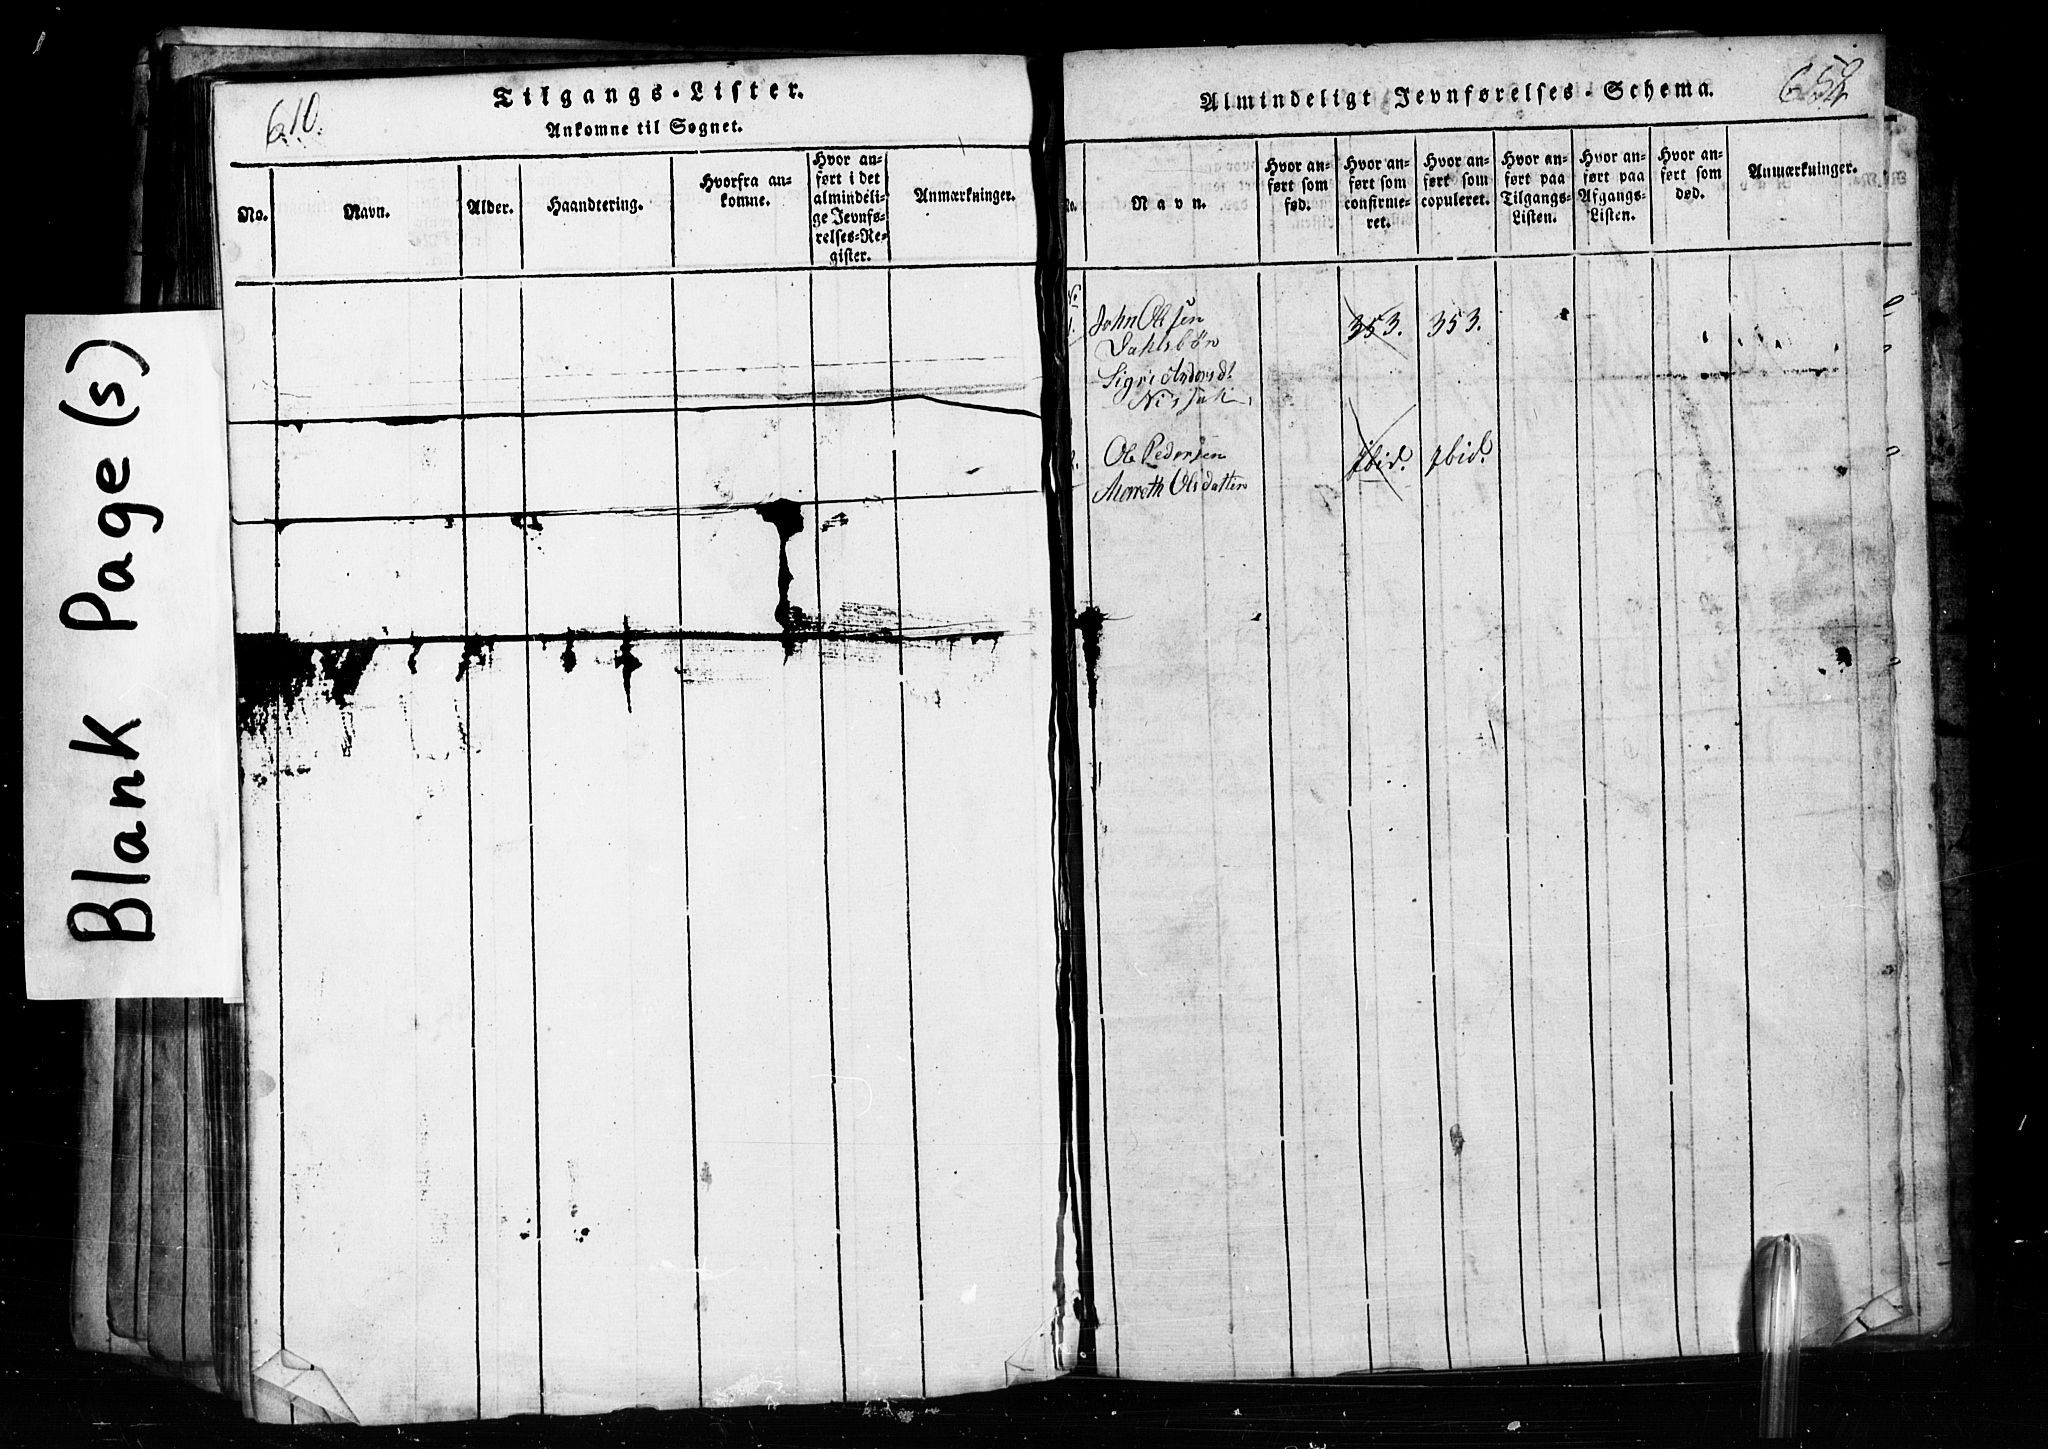 Blank Page(s)
610.
Tilgangs-Lister.
Ankomne til Sognet.
No.
Navn.
Alder.
Haandtering.
Hvorfra an-
komne.
Hvor an-
ført i det
almindeli-
ge Jevnfø-
relses-Re-
gister.
Anmærkninger.
Almindeligt Jevnførelses-Schema.
No.
Navn.
Hvor an-
ført som
fød.
Hvor an-
ført som
confirme-
ret.
Hvor an-
ført som
copuleret.
Hvor an-
ført paa
Tilgangs-
Listen.
Hvor an-
ført paa
Afgangs-
Listen.
Hvor an-
ført som
død.
Anmærkninger.
No
1. John Olsen 353. 353.
Sigri
Ole Pedersen ibid. ibid.
Olsdatter